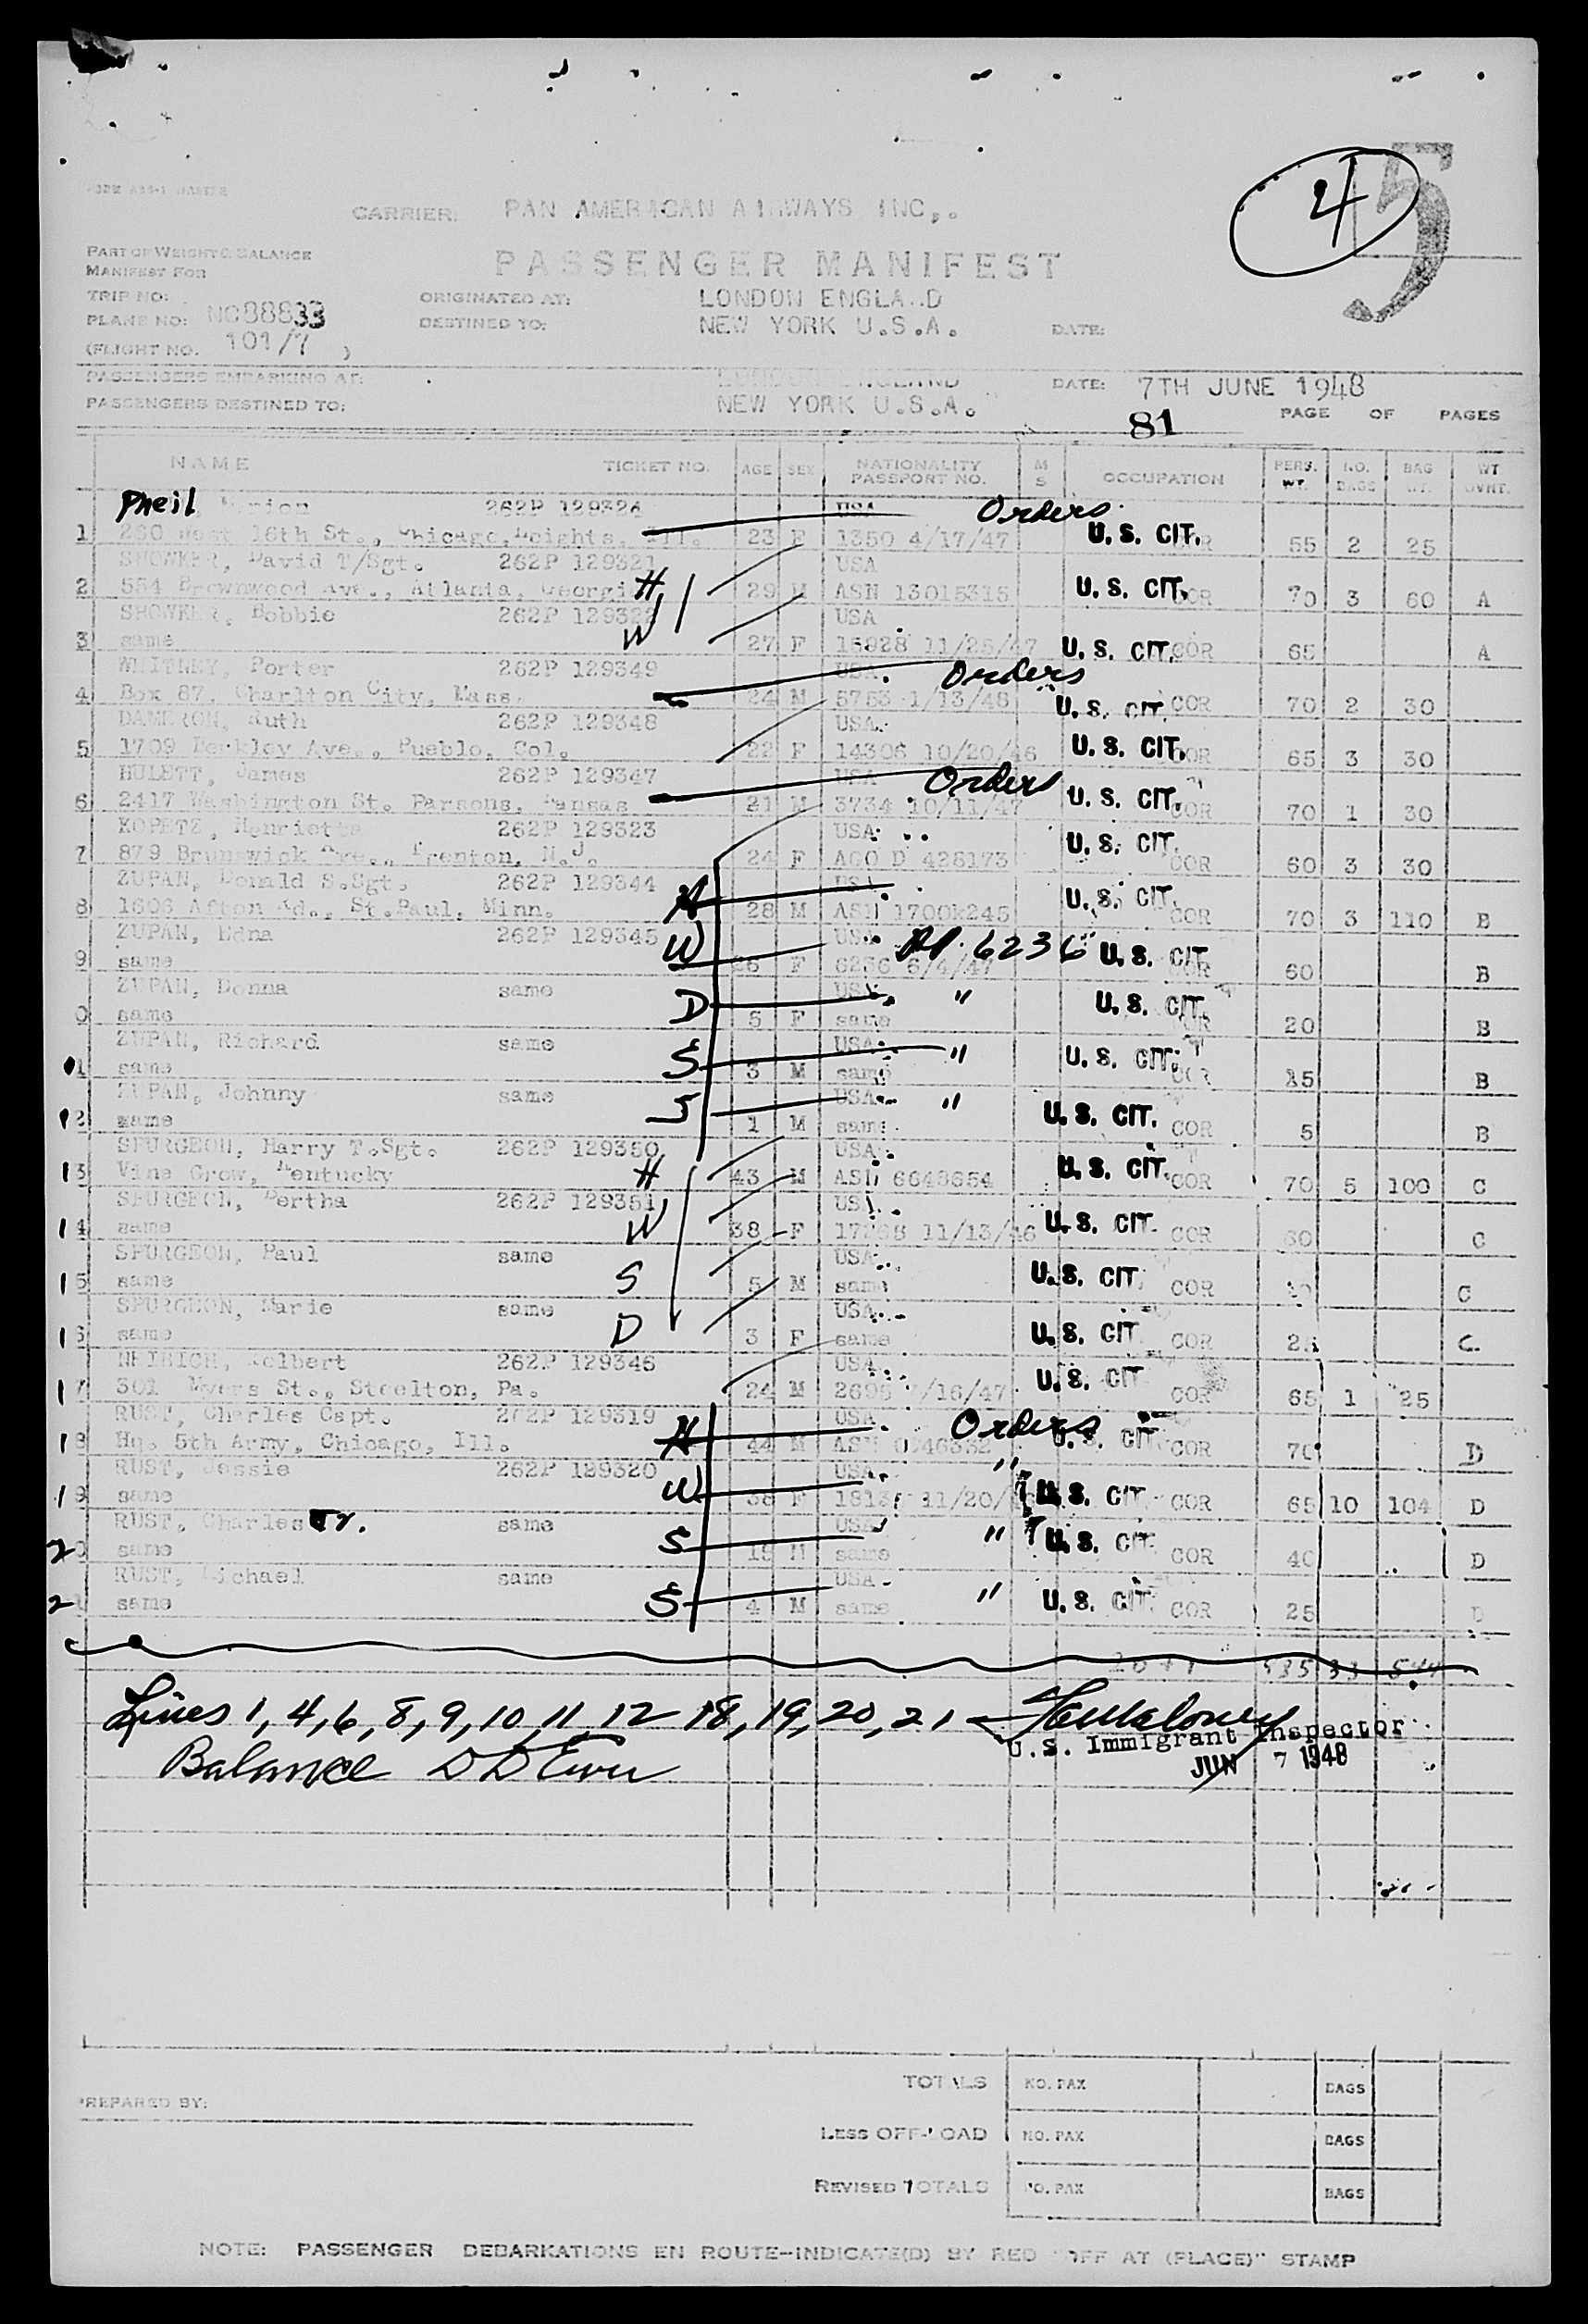 4
5
CARRIER: PAN AMERICAN AIRWAYS INC,.
PART OF WEIGHT & BALANCE
MANIFEST FOR
PASSENGER MANIFEST
TRIP NO:
ORIGINATED AT: LONDON ENGLA..D
PLANE NO: NC88833
DESTINED TO: NEW YORK U.S.A. DATE:
(FLIGHT NO. 101/7 )
PASSENGERS EMBARKING AT: LONDON ENGLAND DATE: 7TH JUNE 1948
PASSENGERS DESTINED TO: NEW YORK U.S.A.
81 PAGE OF PAGES
NAME TICKET NO. AGE SEX NATIONALITY PASSPORT NO. M S OCCUPATION PERS. WT. NO. BAGS BAG WT. WT. OVHT.
Pneil 262P 129324 USA Orders
1 16th St., Chicago Heights, Ill. 23 F 1350 4/17/47 U. S. CIT. 55 2 25
SHOWKER, David T/Sgt. 262P 129321 USA
2 554 Brownwood Ave., Atlanta, Georgi H 29 M ASN 13015315 U. S. CIT. COR 70 3 60 A
SHOWKER, Bobbie 262P 129322 USA
3 same W 27 F 15928 11/25/47 U. S. CIT. COR 65 A
WHITNEY, Porter 262P 129349 USA. Orders
4 Box 87, Charlton City, Mass. 24 M 5753 1/13/48 U. S. CIT. COR 70 2 30
DAMERON, Ruth 262P 129348 USA.
5 1709 Berkley Ave., Pueblo, Col. 22 F 14306 10/20/46 U. S. CIT. COR 65 3 30
HULETT, James 262P 129347 USA Orders
6 2417 Washington St. Parsons, Kansas 21 M 3734 10/11/47 U. S. CIT. COR 70 1 30
KOPETZ, Henrietta 262P 129323 USA
7 879 Brunswick Ave., Trenton, N.J. 24 F AGO D 428173 U. S. CIT. COR 60 3 30
ZUPAN, Donald S.Sgt. 262P 129344 USA
8 1606 Afton Rd., St.Paul, Minn. H 28 M ASN U. S. CIT. COR 70 3 110 B
ZUPAN, Edna 262P 129345 W USA PP. 6236
9 same 26 F 6236 6/4/47 U. S. CIT. COR 60 B
ZUPAN, Donna same USA "
0 same D 5 F same U. S. CIT. COR 20 B
ZUPAN, Richard same USA "
11 same S 3 M same U. S. CIT. COR 15 B
ZUPAN, Johnny same USA "
12 same S 1 M same U. S. CIT. COR 5 B
SPURGEON, Harry T.Sgt. 262P 129350 USA
13 Vine Grow, Kentucky H 43 M ASN 6648654 U. S. CIT. COR 70 5 100 C
SPURGEON, Bertha 262P 129351 USA
14 same W 38 F 11/13/46 U. S. CIT. COR 60 C
SPURGEON, Paul same USA
15 same S 5 M same U. S. CIT. COR C
SPURGEON, Marie same USA
16 same D 3 F same U. S. CIT. COR C.
262P 129346 USA
17 301 Myers St., Steelton, Pa. 24 M /16/47 U. S. CIT. COR 65 1 25
RUST, Charles Capt. 262P 129319 USA Orders
18 Hq. 5th Army, Chicago, Ill. H 44 M ASN U. S. CIT. COR 70 D
RUST, Jessie 262P 129320 USA "
19 same W 38 F 11/20/ U. S. CIT. COR 65 10 104 D
RUST, Charles Jr. same USA "
20 same S M same U. S. CIT. COR 40 D
RUST, Michael same USA
21 same S 4 M same " U. S. CIT. COR 25 D
20 + 1 33 544
Lines 1, 4, 6, 8, 9, 10, 11, 12 18, 19, 20, 21
U.S. Immigrant Inspector
Balance
JUN 7 1948
TOTALS NO. PAX BAGS
PREPARED BY:
LESS OFF-LOAD NO. PAX BAGS
REVISED TOTALS NO. PAX BAGS
NOTE: PASSENGER DEBARKATIONS EN ROUTE—INDICATE(D) BY RED "OFF AT (PLACE)" STAMP